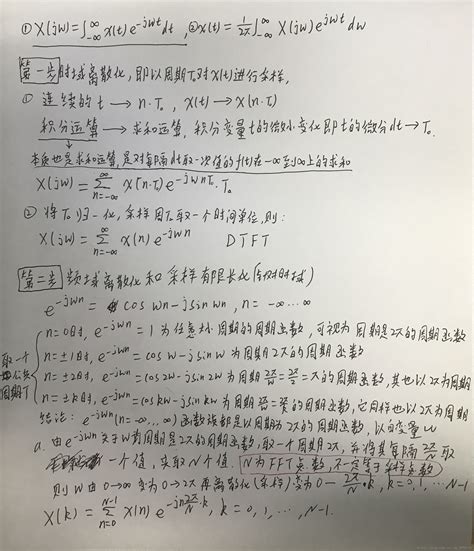 ① X(jw)=∫_{-∞}^{∞} x(t)e^{-jwt}dt ②x(t)=1/2π∫_{-∞}^{∞} X(jw)e^{jwt}dw
第一步 时域离散化,即以周期T₀对x(t)进行采样,
① 连续的t → n·T₀, x(t)→x(n·T₀)
积分运算→求和运算,积分变量t的微小变化即t的微分dt→T₀
本质也是求和运算,是对每隔dt取一次值的f(t)在-∞至∞上的求和
X(jw)=∑_{n=-∞}^{∞} x(n·T₀)e^{-jwnT₀}·T₀
② 将T₀归一化,采样周T₀取一个时间单位,则:
X(jw)=∑_{n=-∞}^{∞} x(n)e^{-jwn} DTFT
第二步 频域离散化和采样有限长化(针对时域)
e^{-jwn}= coswn-jsinwn, n=-∞…∞
n=0时, e^{-jwn}=1为任意周期的周期函数,可视为周期是2π的周期函数
n=±1时, e^{-jwn}=cosw-jsinw为周期2π的周期函数
n=±2时, e^{-jwn}=cos2w-jsin2w为周期2π/n=2π/2=π的周期函数,其也以2π为周期
n=±k时, e^{-jwn}=coskw-jsinkw为周期2π/n=2π/k的周期函数,它同样也以2π为周期
取一个
公共
周期T
结论: e^{-jwn}(n=-∞…∞)函数族都是以周期为2π的周期函数,以自变量w
a. 由e^{-jwn}关于w有周期是2π的周期函数,取一个周期2π,并将其每隔2π/N取
一个值,共取N个值.N为FFT点数,不一定等于采样点数
则w由0→∞变为0→2π再离散化(采样)变为0—2π/N·k, k=0,1,…N-1
X(k)=∑_{n=0}^{N-1} x(n)e^{-jn2π/N·k}, k=0,1,…,N-1.